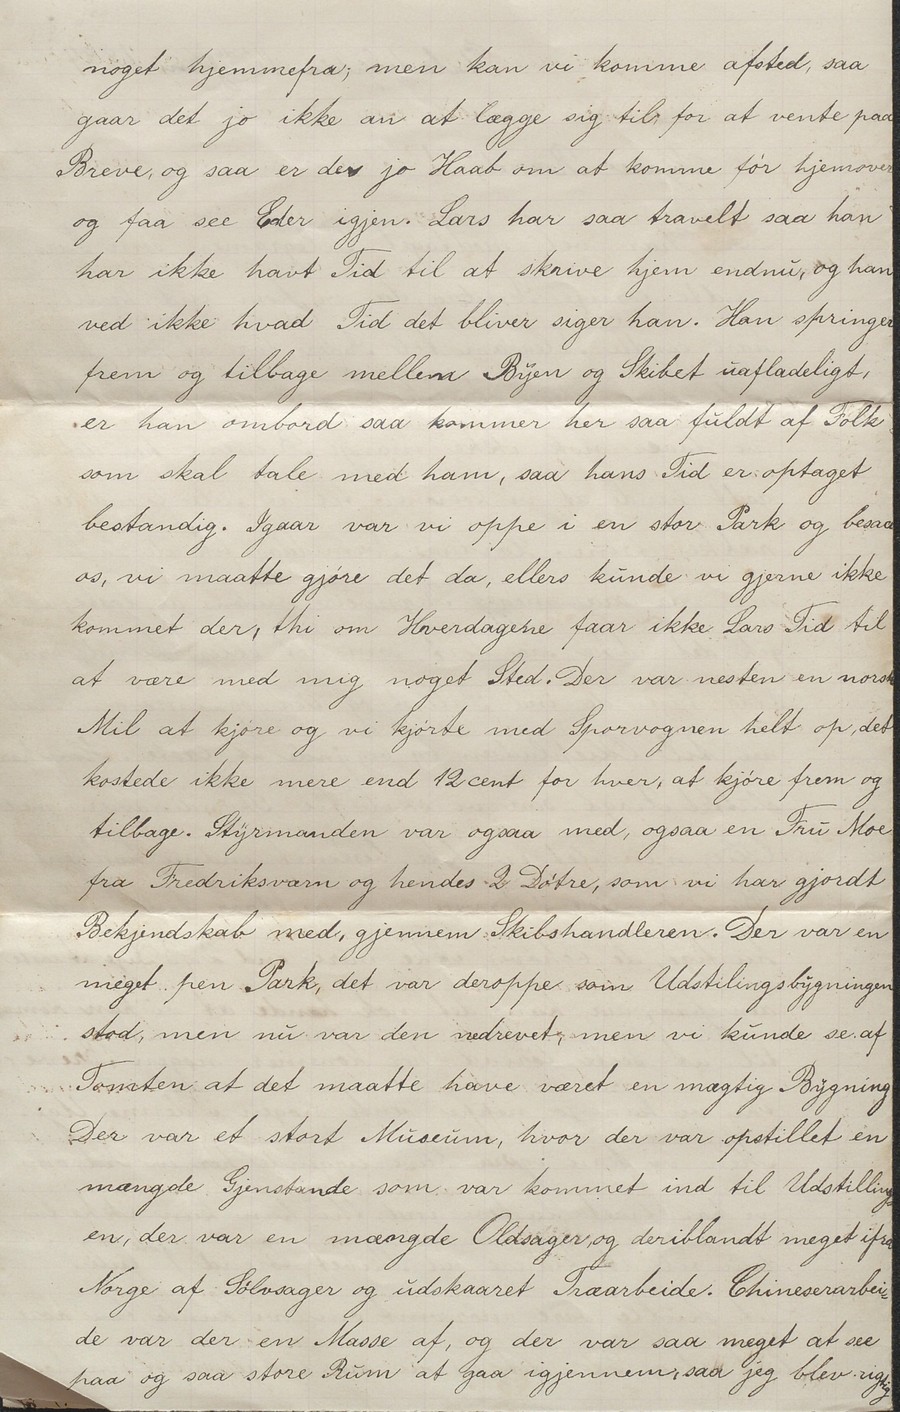 noget hjemmefra; men kan vi komme afsted, saa
gaar det jo ikke an at lægge sig til, for at vente paa
Breve, og saa er der jo Haab om at komme før hjemover
og faa see Eder igjen. Lars har saa travelt saa han
har ikke havt Tid til at skrive hjem endnu, og han
ved ikke hvad Tid det bliver siger han. Han springer
frem og tilbage mellem Byen og Skibet uafladeligt,
er han ombord saa kommer her saa fuldt af Folk
som skal tale med ham, saa hans Tid er optaget
bestandig. Igaar var vi oppe i en stor Park og besaa
os, vi maatte gjøre det da, ellers kunde vi gjerne ikke
kommet der, thi om Hverdagene faar ikke Lars Tid til
at være med mig noget Sted. Der var nesten en norsk
Mil at kjøre og vi kjørte med Sporvognen helt op, det
kostede ikke mere end 12 cent for hver, at kjøre frem og
tilbage. Styrmanden var ogsaa med, ogsaa en Fru Moe
fra Fredriksværn og hendes 2 Døtre, som vi har gjordt
Bekjendskab med, gjennem Skibshandleren. Der var en
meget pen Park, det var deroppe som Udstilingsbygningen
stod, men nu var den nedrevet, men vi kunde se af
Tomten at det maatte have været en mægtig Bygning
Der var et stort Museum, hvor der var opstillet en
mængde Gjenstande som var kommet ind til Udstilling
en, der var en mængde Oldsager, og deriblandt meget ifra
Norge af Sølvsager og udskaaret Træarbeide. Chineserarbei=
de var der en Masse af, og der var saa meget at see
paa og saa store Rum at gaa igjennem, saa jeg blev rigtig